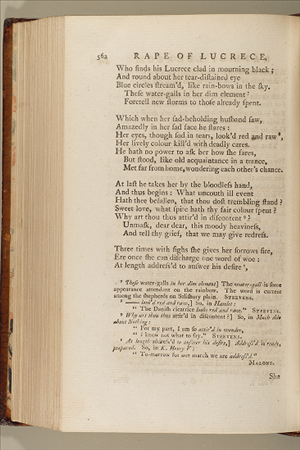 562 RAPE OF LUCRECE.
Who finds his Lucrece clad in mourning black;
And round about her tear-distained eye
Blue circles stream'd, like rain-bows in the sky.
These water-galls in her dim element
Foretell new storms to those already spent.
Which when her sad-beholding husband saw,
Amazedly in her sad face he stares:
Her eyes, though sod in tears, look'd red and raw,
Her lively colour kill'd with deadly cares.
He hath no power to ask her how she fares,
But stood, like old acquaintance in a trance,
Met far from home, wondering each other's chance.
At last he takes her by the bloodless hand,
And thus begins: What uncouth ill event
Hath thee befallen, that thou dost trembling stand?
Sweet love, what spite hath thy fair colour spent?
Why art thou thus attir'd in discontent?
Unmask, dear dear, this moody heaviness,
And tell thy grief, that we may give redress.
Three times with sighs she gives her sorrows fire,
Ere once she can discharge one word of woe:
At length address'd to answer his desire,
These water-galls in her dim element] The water-gall is some
appearance attendant on the rainbow. The word is current
among the shepherds on Salisbury plain. STEEVENS.
look'd red and raw,] So, in Hamlet:
"The Danish cicatrice looks red and raw." STEEVENS.
Why art thou thus attir'd in discontent?] So, in Much Ado
about Nothing:
"For my part, I am so attir'd in wonder,
"I know not what to say." STEEVENS.
At length address'd to answer his desire,] Address'd is ready,
prepared. So, in K. Henry V:
"To-morrow for our march we are address'd."
MALONE.
She